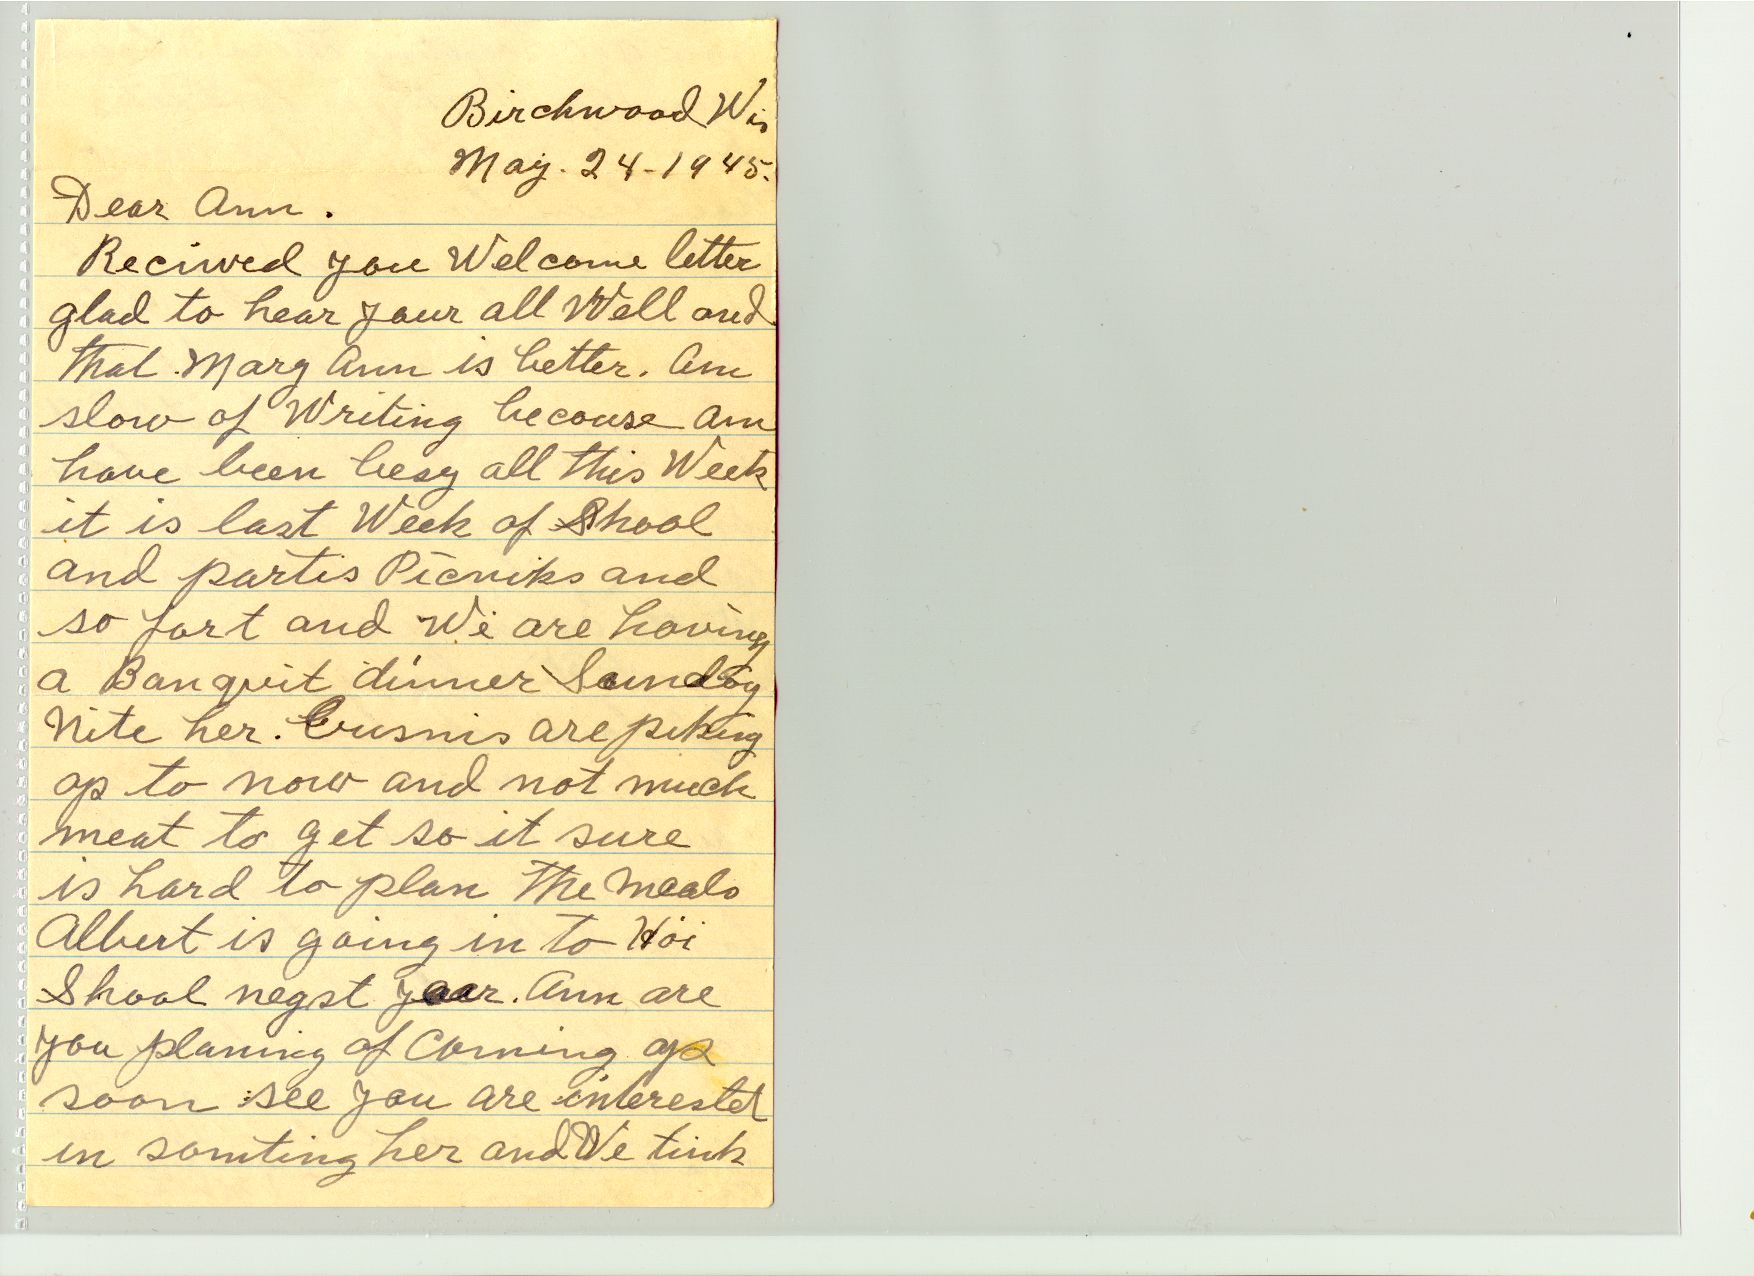 Birchwood Wis
May. 24-1945.
Dear Ann.
Recived you Welcome letter
glad to hear your all Well and
that Mary Ann is better. Am
slow of Writing becouse am
have been besy all this Week
it is last Week of Shool
and partis Picniks and
so fort and We are having
a Banquit dinner Sunday
Nite her. Busnis are piking
op to now and not much
meat to get so it sure
is hard to plan the meals
Albert is going in to Hoi
Shool negst year. Ann are
you planing of Coming op
soon see you are interestet
in somting her and We tink